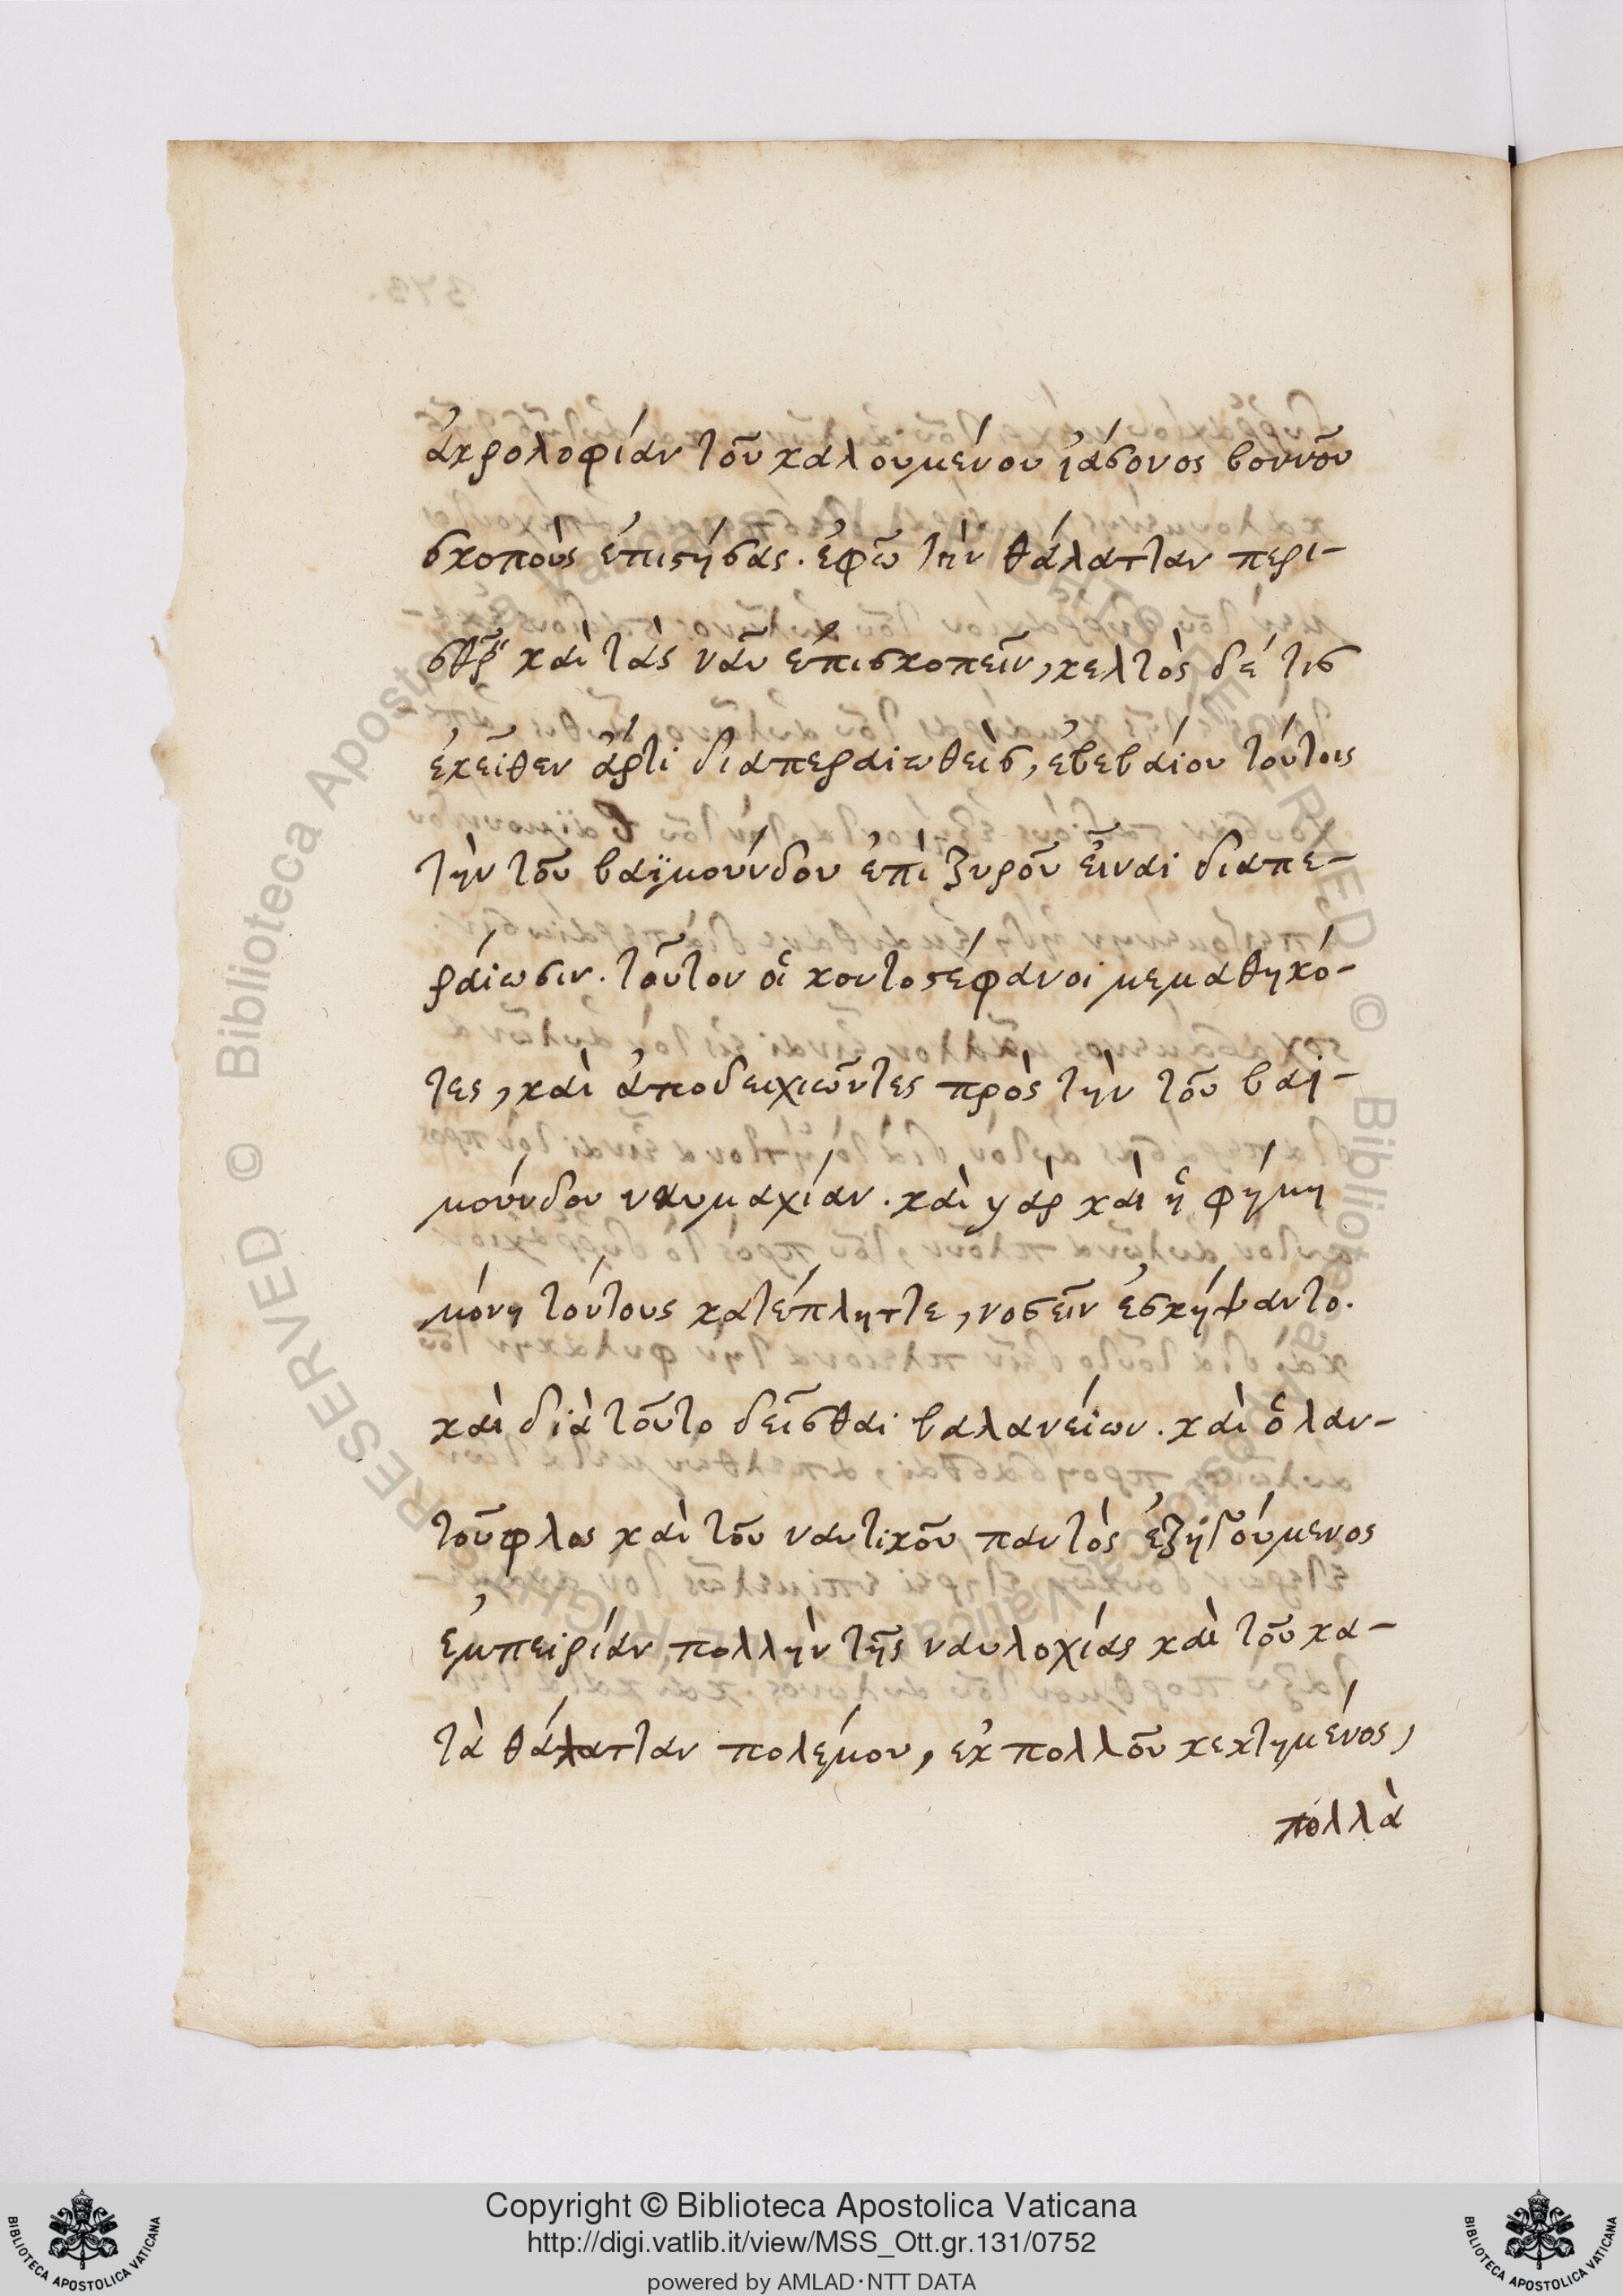 ἀκρολοφίαν τοῦ καλουμένου ἰάσονος βουνοῦ
σκοποὺς ἐπιστήσας. ἐφῶ τὴν θάλατταν περι-
καὶ τὰς ναῦ ἐπισκοπεῖν, κελτὸς δέ τις
ἐκεῖθεν ἄρτι διαπεραιωθεὶς, ἐβεβαίου τούτοις
τὴν τοῦ βαϊμούνδου ἐπὶ ξυροῦ εἶναι διαπε-
ραίωσιν. τοῦτον οἱ κοντοστέφανοι μεμαθηκό-
τες, καὶ ἀποδειχιῶντες πρὸς τὴν τοῦ βαϊ-
μούνδου ναυμαχίαν. καὶ γὰρ καὶ ἡ φήμη
μόνη τούτους κατέπληττε, νοσεῖν ἐσκήψαντο.
καὶ διὰ τοῦτο δεῖσθαι βαλανείων. καὶ ὁ λαν-
τοῦφλος καὶ τοῦ ναυτικοῦ παντὸς ἐξηγούμενος
ἐμπειρίαν πολλὴν τῆς ναυλοχίας καὶ τοῦ κα-
τὰ θάλατταν πολέμου, ἐκ πολλοῦ κεκτημένος,
πολλὰ
Copyright © Biblioteca Apostolica Vaticana
http://digi.vatlib.it/view/MSS_Ott.gr.131/0752
powered by AMLAD·NTT DATA
BIBLIOTECA APOSTOLICA VATICANA
BIBLIOTECA APOSTOLICA VATICANA